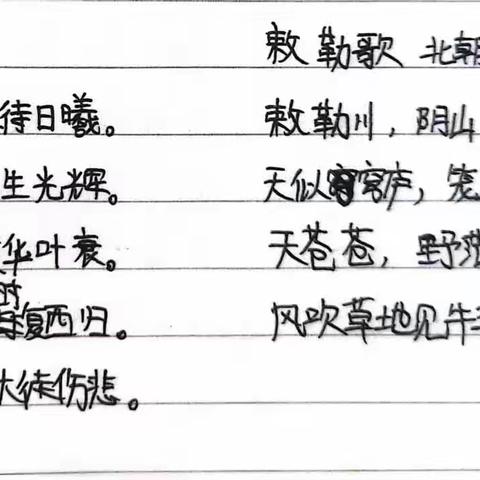 待日曦。
生光辉。
华叶衰。
时
复西归。
徒伤悲。
敕勒歌 北朝
敕勒川，阴山
天似穹庐，笼
天苍苍，野茫
风吹草地见牛